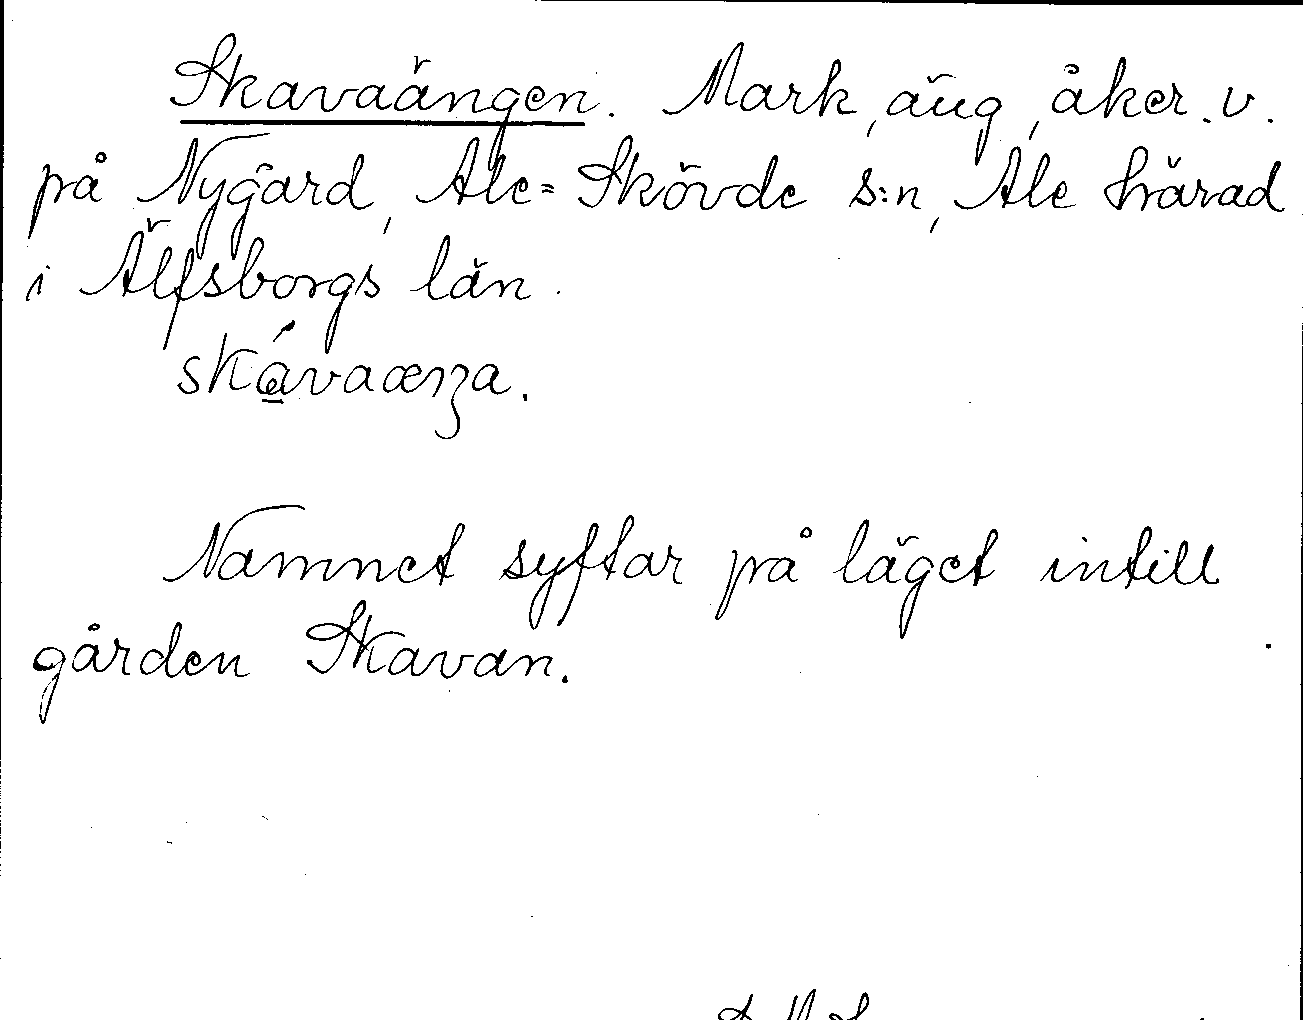 Skavaängen. Mark, äng, åker. v.
på Nygård, Ale-Skövde s:n, Ale härad
i Älfsborgs län.
skávaæŋa.
Namnet syftar på läget intill
gården Skavan.